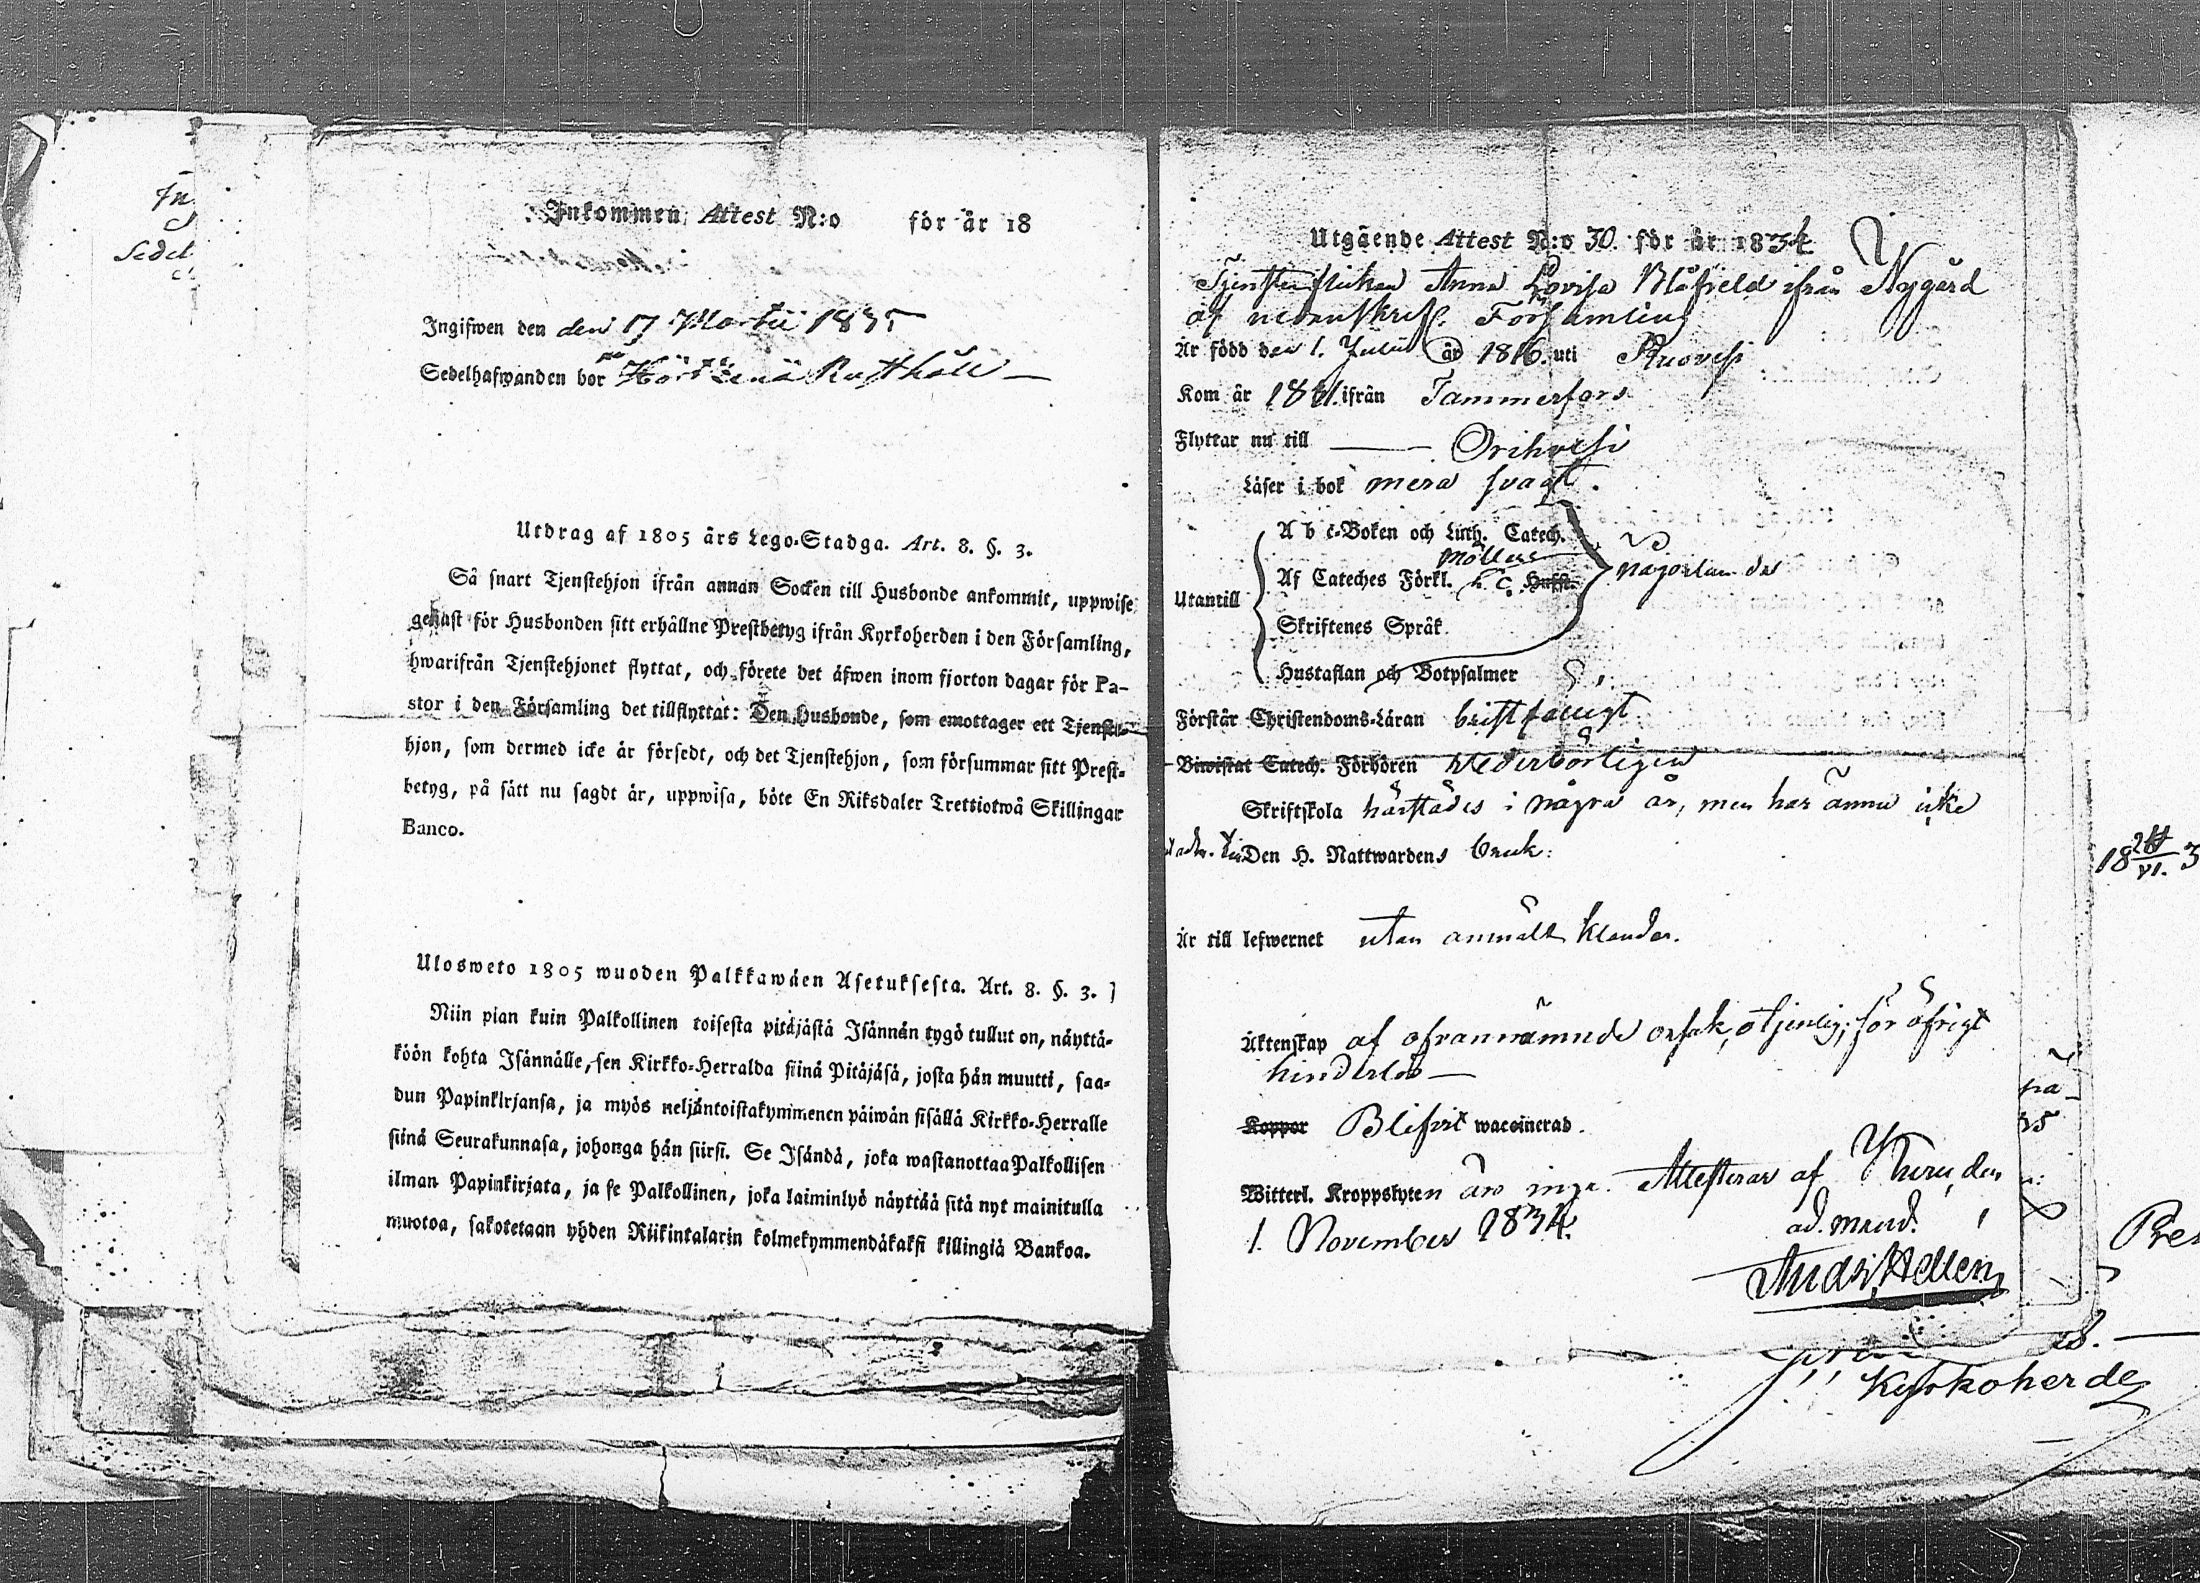 In
Sedel
Inkommen Attest N:o för år 18
Ingifwen den den 17 Martii 1835
Sedelhafwanden bor på Rusthåll
Utdrag af 1805 års Lego-Stadga. Art. 8. §. 3.
Så snart Tjenstehjon ifrån annan Socken till Husbonde ankommit, uppwise
genast för Husbonden sitt erhållne Prestbetyg ifrån Kyrkoherden i den Församling,
hwarifrån Tjenstehjonet flyttat, och förete det äfwen inom fjorton dagar för Pa-
stor i den Församling det tillflyttat: Den Husbonde, som emottager ett Tjenste-
hjon, som dermed icke är försedt, och det Tjenstehjon, som försummar sitt Prest-
betyg, på sätt nu sagdt är, uppwisa, böte En Riksdaler Trettiotwå Skillingar
Banco.
Ulosweto 1805 wuoden Palkkawäen Asetuksesta. Art. 8. §. 3.
Niin pian kuin Palkollinen toisesta pitäjästä Isännän tygö tullut on, näyttä-
köön kohta Isännälle, sen Kirkko-Herralda siinä Pitäjäsä, josta hän muutti, saa-
dun Papinkirjansa, ja myös neljäntoistakymmenen päiwän sisällä Kirkko-Herralle
siinä Seurakunnasa, johonga hän siirsi. Se Isändä, joka wastanottaa Palkollisen
ilman Papinkirjata, ja se Palkollinen, joka laiminlyö näyttää sitä nyt mainitulla
muotoa, sakotetaan yhden Riikintalarin kolmekymmendäkaksi killingiä Bankoa.
Utgående Attest N:o 30. för år 1834
Tjensteflickan Anna Lovisa Blåfield ifrån Nygård
af nedanskrefne Församling
Är född den 1. Julii år 1816. uti Ruovesi
Kom år 1831. ifrån Tammerfors
Flyttar nu till Orihvesi
Läser i bok mera svagt.
Utantill
A b c-Boken och Luth. Catech.
Möllers
Af Cateches Förkl. h. c. Hufst.
någorlunda
Skriftenes Språk
Hustaflan och Botpsalmer
Förstår Christendoms-Läran bristfälligt
Biwistat Catech. Förhören wederbörligen
Skriftskola härstädes i några år, men har ännu icke
Den H. Nattwardens bruk:
Är till lefwernet utan anmält klander.
Äktenskap af ofvannämnde orsak, otjenlig; för öfrigt
hinderlös
Koppor Blifvit waccinerad.
Witterl. Kroppslyten äro inga. Attesteras af Kuru, den
1. November 1834. ad. mand.
Andr. Hellen
Kyrkoherde
på
35
18 3
Pre